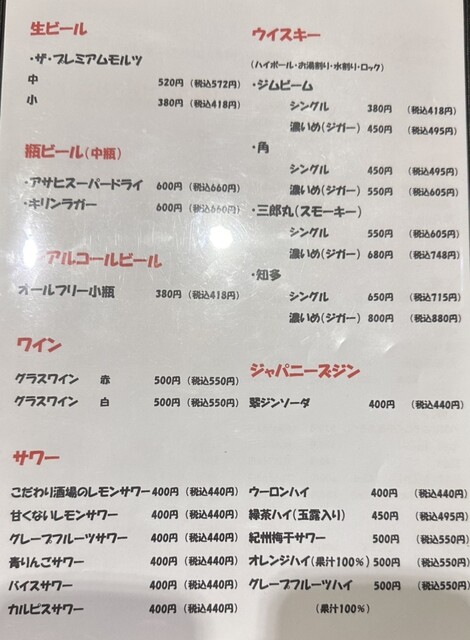 生ビール
・ザ・プレミアムモルツ
中 520円（税込572円）
小 380円（税込418円）
瓶ビール（中瓶）
・アサヒスーパードライ 600円（税込660円）
・キリンラガー 600円（税込660円）
アルコールビール
オールフリー小瓶 380円（税込418円）
ワイン
グラスワイン 赤 500円（税込550円）
グラスワイン 白 500円（税込550円）
サワー
こだわり酒場のレモンサワー 400円（税込440円）
甘くないレモンサワー 400円（税込440円）
グレープフルーツサワー 400円（税込440円）
青りんごサワー 400円（税込440円）
バイスサワー 400円（税込440円）
カルピスサワー 400円（税込440円）
ウイスキー
（ハイボール・お湯割り・水割り・ロック）
・ジムビーム
シングル 380円（税込418円）
濃いめ（ジガー） 450円（税込495円）
・角
シングル 450円（税込495円）
濃いめ（ジガー） 550円（税込605円）
・三郎丸（スモーキー）
シングル 550円（税込605円）
濃いめ（ジガー） 680円（税込748円）
・知多
シングル 650円（税込715円）
濃いめ（ジガー） 800円（税込880円）
ジャパニーズジン
翠ジンソーダ 400円（税込440円）
ウーロンハイ 400円（税込440円）
緑茶ハイ（玉露入り） 450円（税込495円）
紀州梅干サワー 500円（税込550円）
オレンジハイ（果汁100％） 500円（税込550円）
グレープフルーツハイ 500円（税込550円）
（果汁100％）